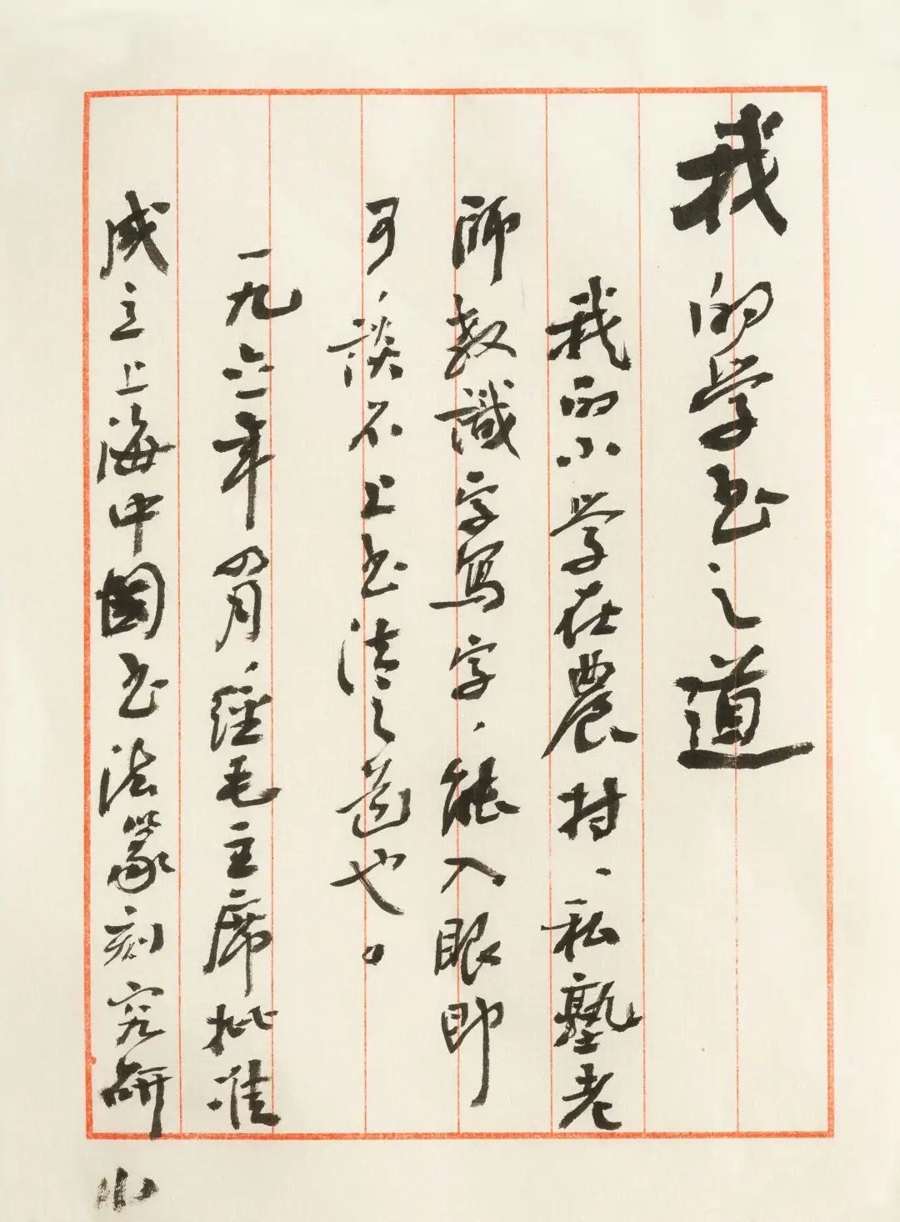 我的学书之道
我的小学在農村、私塾老
師教識字写字、能入眼即
可，談不上书法之道也。
一九六一年四月，經毛主席批准
成立上海中国书法篆刻究研